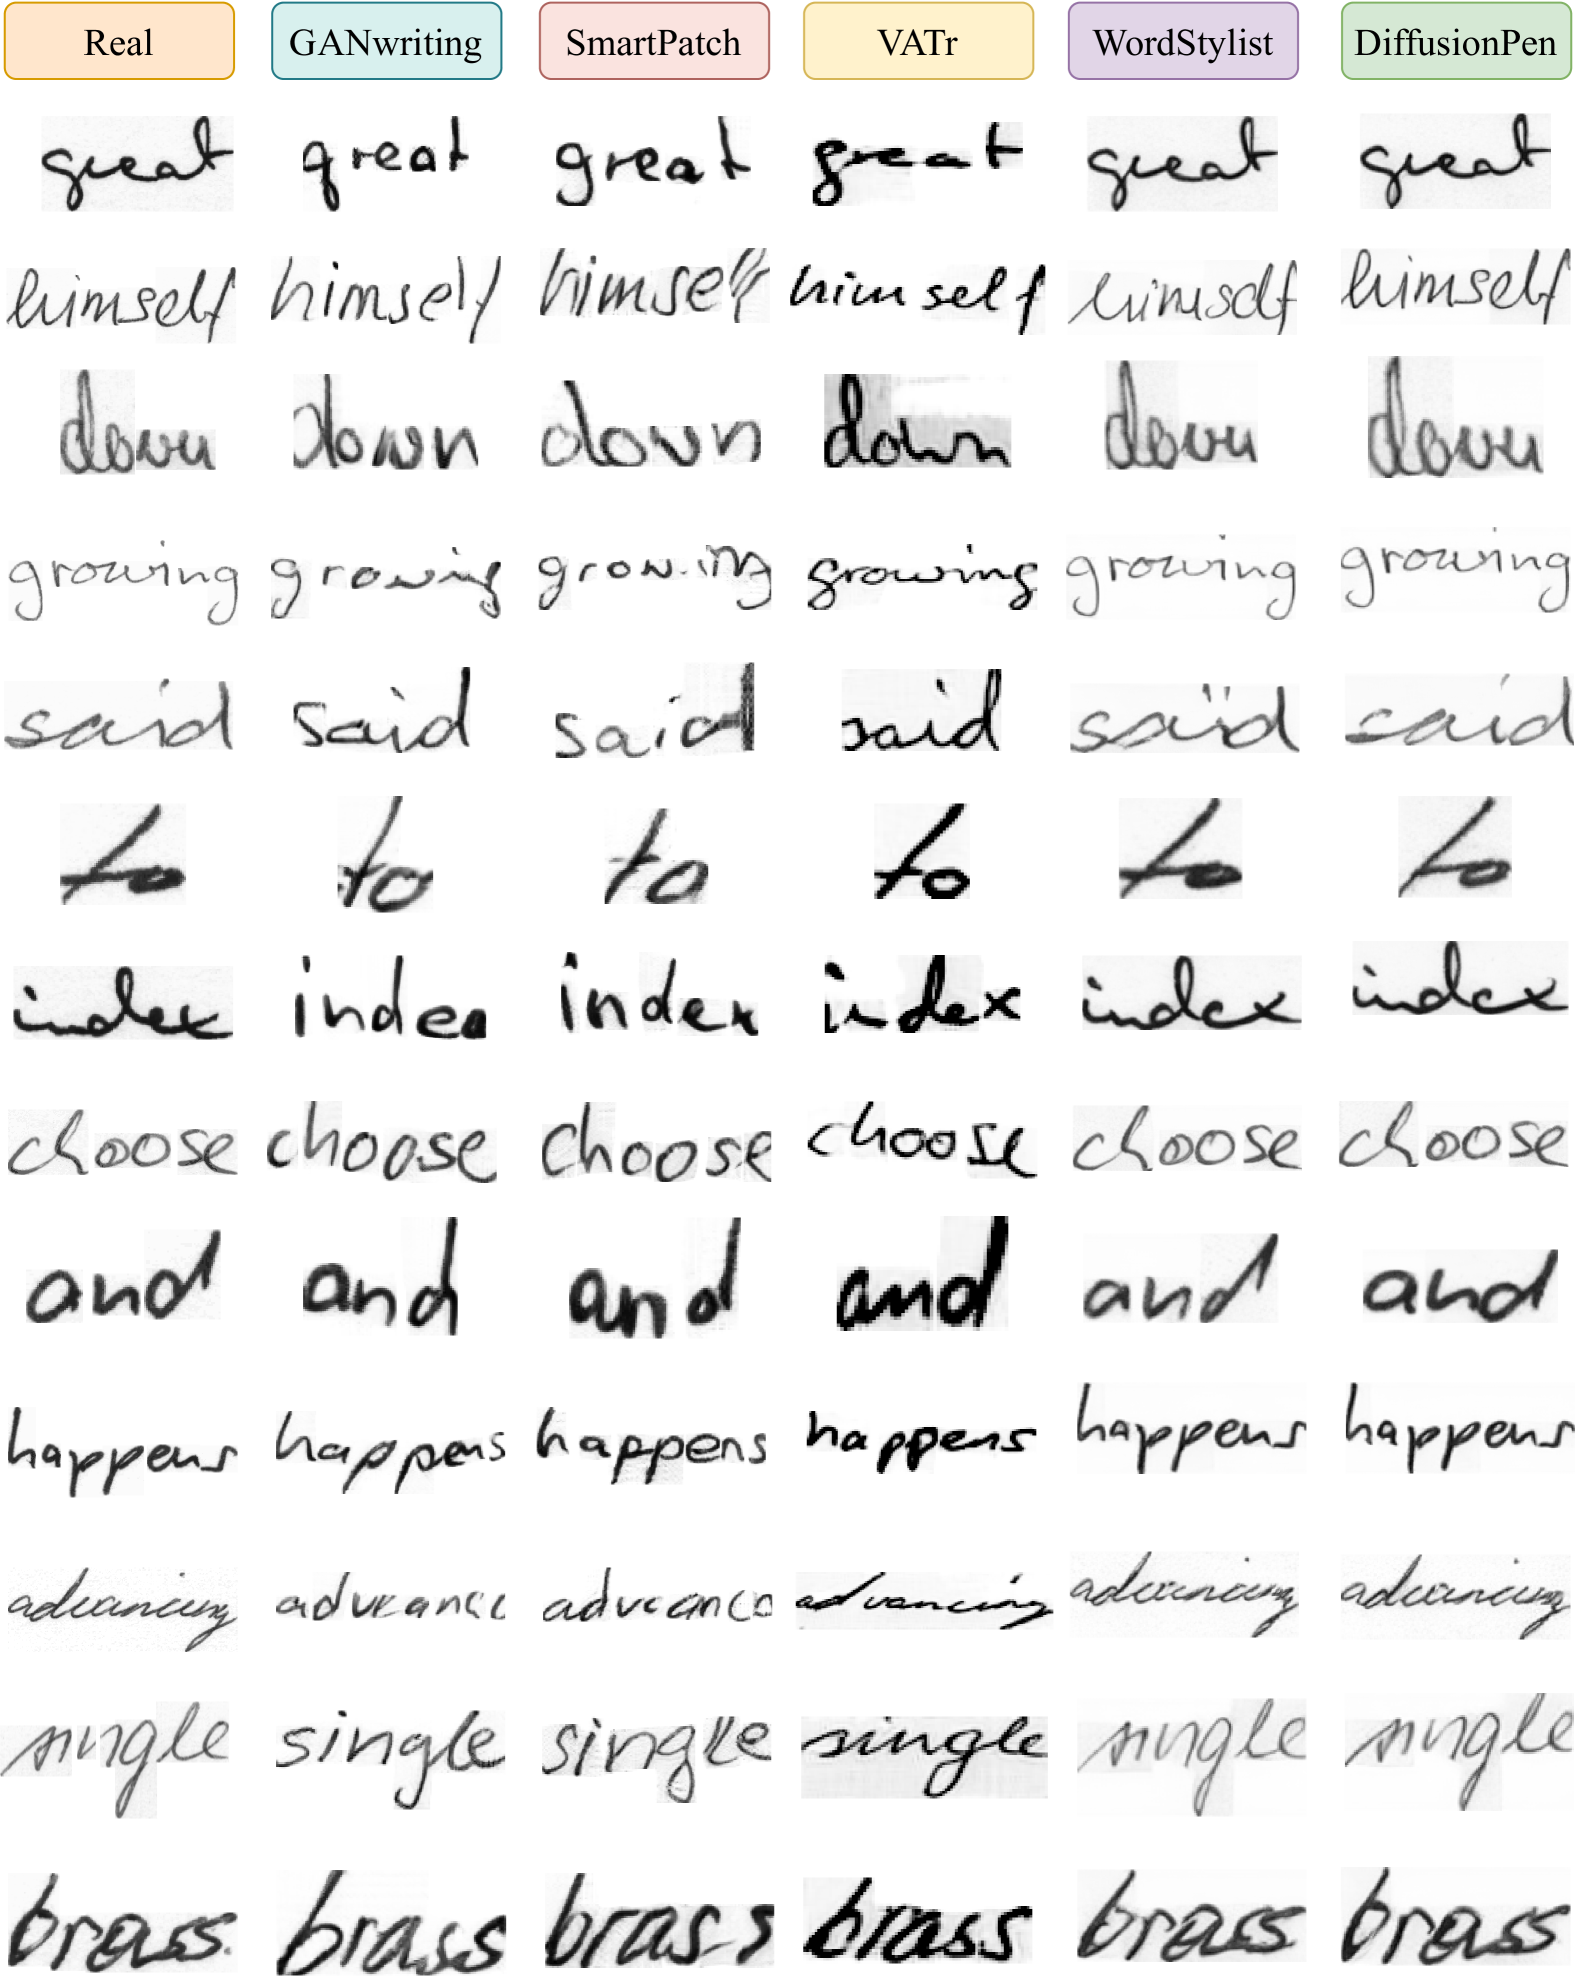 Real GANwriting SmartPatch VATr WordStylist DiffusionPen
great great great great great great
himself himself himself himself himself himself
down down down down down down
growing growing growing growing growing growing
said said said said said said
to to to to to to
index indea index index index index
choose choose choose choose choose choose
and and and and and and
happens happens happens happens happens happens
advancing advancing advancing advancing
single single single single single single
brass brass brass brass brass brass